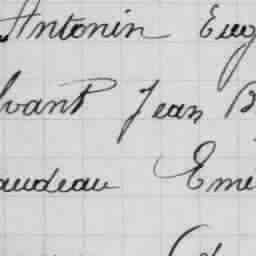 Antonin Eug
vant Jean B
audeau Emi